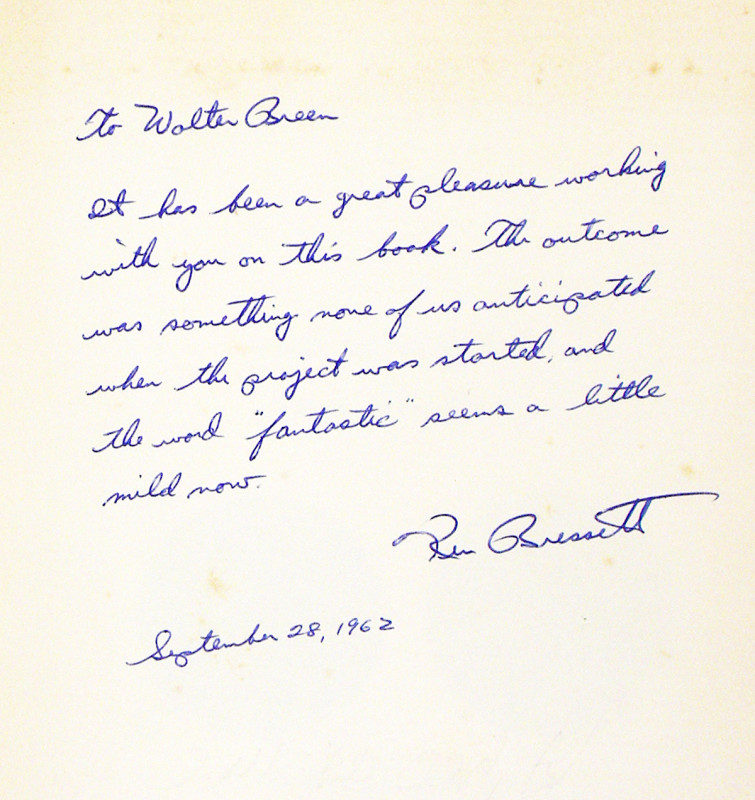 To Walter Breen
It has been a great pleasure working
with you on this book. The outcome
was something none of us anticipated
when the project was started, and
the word "fantastic" seems a little
mild now.
Ken Bressett
September 28, 1962